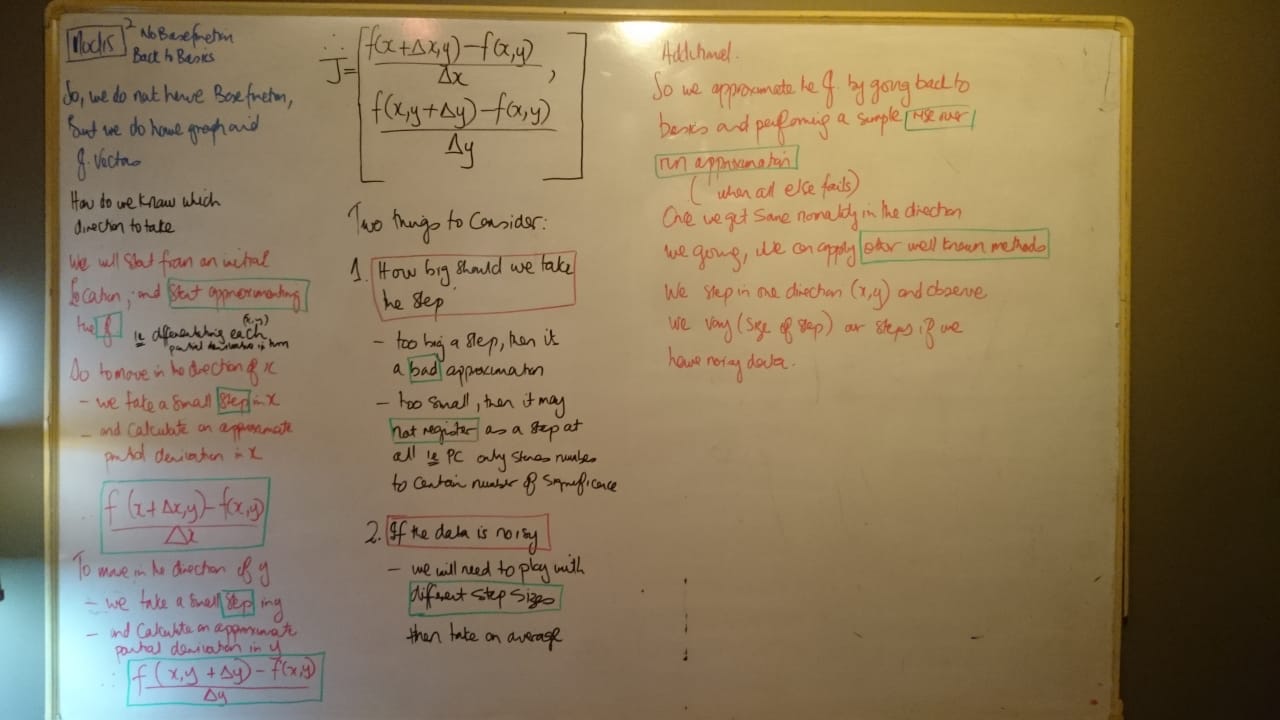 No Base function
Back to Basics
So, we do not have Base function,
But we do have graph and
J. Vectors
How do we know which
direction to take
We will start from an initial
Location, and start approximating
the J
ie differentiating each (x,y)
partial derivative in turn
So to move in the direction of x
- we take a small step in x
- and calculate an approximate
partial derivation in x
f(x+Δx,y)-f(x,y)
Δx
To move in the direction of y
- we take a small step in y
- and calculate an approximate
partial derivation in y
∴ f(x,y+Δy)-f(x,y)
Δy
∴
J = [ f(x+Δx,y)-f(x,y)
Δx ,
f(x,y+Δy)-f(x,y)
Δy ]
Two things to consider:
1. How big should we take
the step
- too big a step, then it
a bad approximation
- too small, then it may
not register as a step at
all ie PC only stores numbers
to certain number of significance
2. If the data is noisy
- we will need to play with
different step sizes
then take an average
So we approximate the J. by going back to
basics and performing a simple rise over
run approximation
(when all else fails)
Once we get some in the direction
we going, we can apply other well known methods
We step in one direction (x,y) and observe
We vary (size of step) our steps if we
have noisy data.